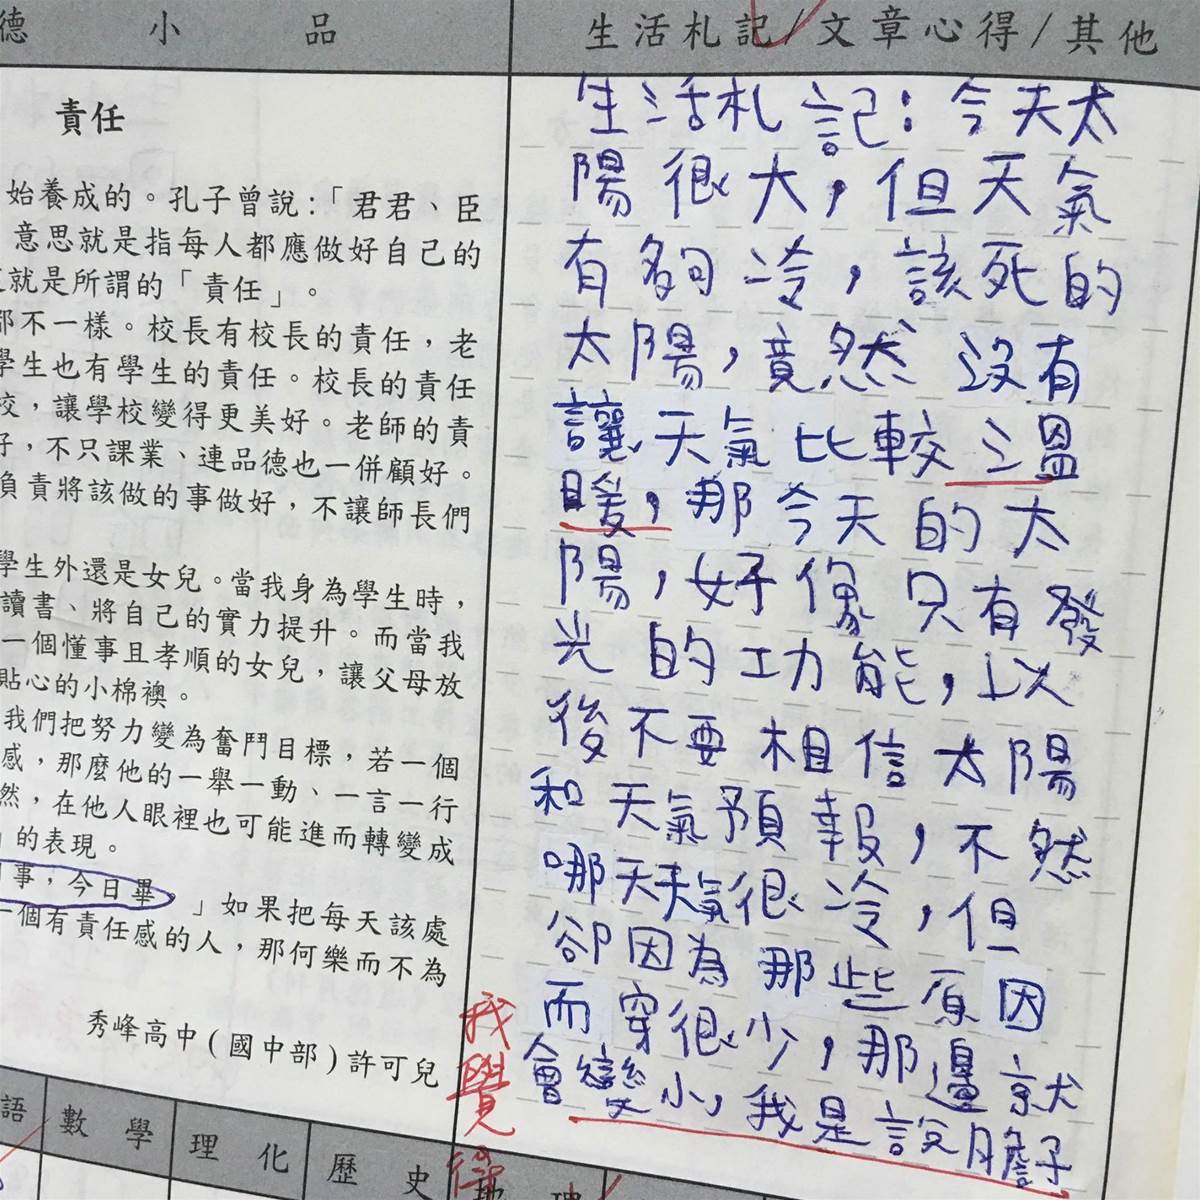 德小品
生活札記/文章心得/其他
責任
始養成的。孔子曾說:「君君、臣
意思就是指每人都應做好自己的
就是所謂的「責任」。
都不一樣。校長有校長的責任，老
學生也有學生的責任。校長的責任
校，讓學校變得更美好。老師的責
好，不只課業、連品德也一併顧好。
負責將該做的事做好，不讓師長們
學生外還是女兒。當我身為學生時，
讀書、將自己的實力提升。而當我
一個懂事且孝順的女兒，讓父母放
貼心的小棉襖。
我們把努力變為奮鬥目標，若一個
感，那麼他的一舉一動、一言一行
然，在他人眼裡也可能進而轉變成
」的表現。
事，今日畢。」如果把每天該處
一個有責任感的人，那何樂而不為
秀峰高中(國中部)許可兒
語 數學 理化 歷史 地理
生活札記：今天太
陽很大，但天氣
有夠冷，該死的
太陽，竟然沒有
讓天氣比較溫
暖，那今天的太
陽，好像只有發
光的功能，以
後不要相信太陽
和天氣預報，不然
哪天天氣很冷，但
卻因為那些原因
而穿很少，那邊就
會變小，我是說膽子
我覺得